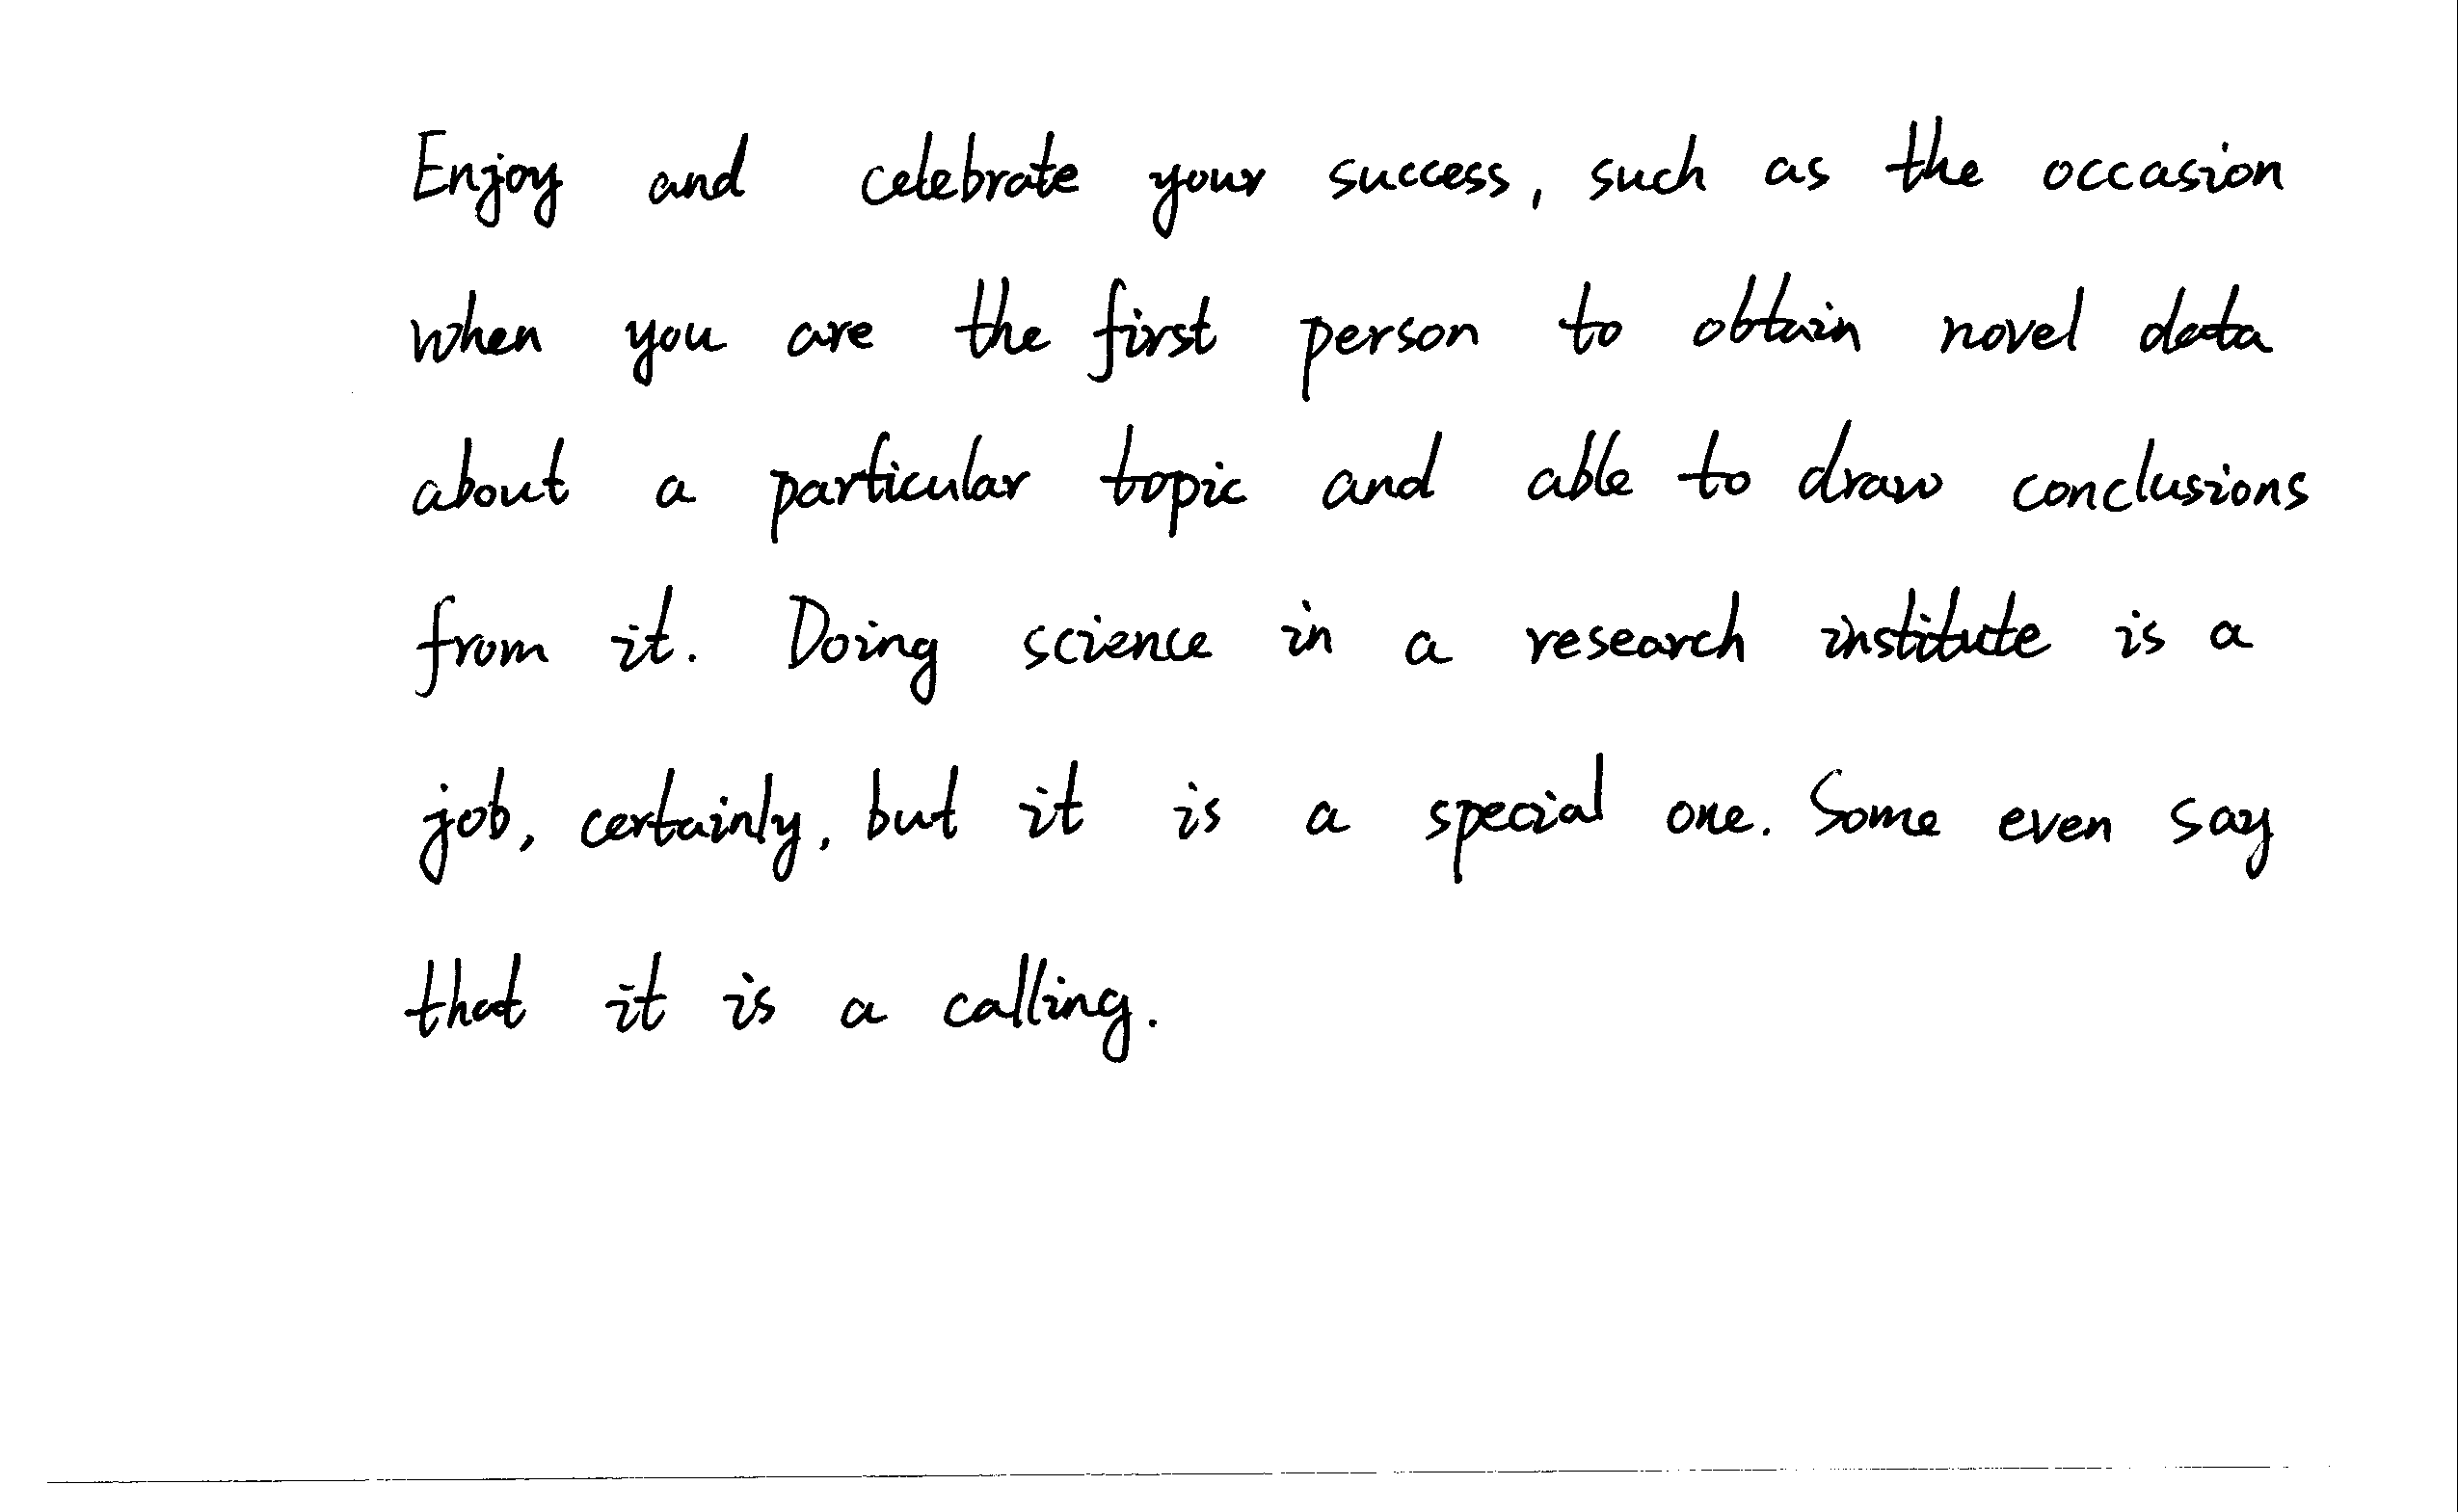 Enjoy and celebrate your success, such as the occasion
when you are the first person to obtain novel data
about a particular topic and able to draw conclusions
from it. Doing science in a research institute is a
job, certainly, but it is a special one. Some even say
that it is a calling.